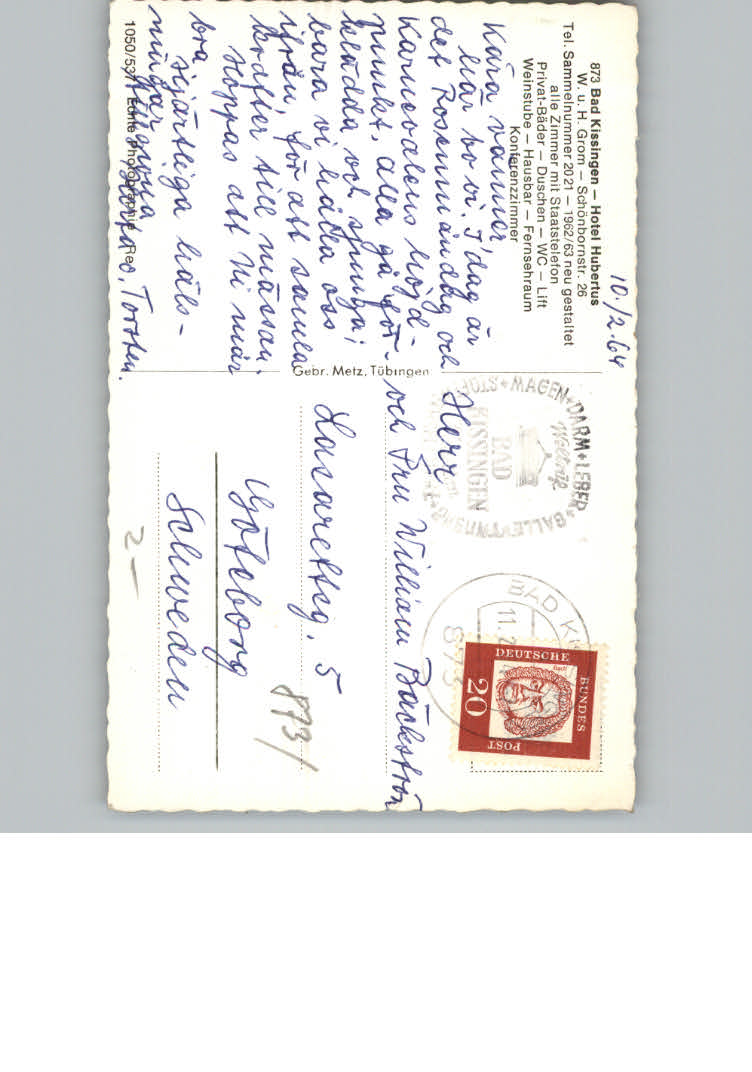 10./2.64
873 Bad Kissingen – Hotel Hubertus
W. u. H. Grom – Schönbornstr. 26
Tel. Sammelnummer 2021 – 1962/63 neu gestaltet
alle Zimmer mit Staatstelefon
Privat-Bäder – Duschen – WC – Lift
Weinstube – Hausbar – Fernsehraum
Konferenzzimmer
Kära vänner,
här bo vi. I dag är
det Rosenmåndag och
Karnevalens höjd-
punkt, alla gå för-
klädda och sjunga;
bara vi hålla oss
ifrån, för att samla
krafter till mässan.
Hoppas att Ni mår
bra.
Hjärtliga häls-
ningar
Torsten.
1050/537 Echte Photographie
Gebr. Metz, Tübingen
MAGEN + DARM + LEBER + GALLE
Weltruf
BAD
KISSINGEN
BAD KI
11.2
873
DEUTSCHE
BUNDES
POST
20
Bach
Herr
och Fru William Bäckström
Lasarettsg. 5
Göteborg
Schweden
873/
2 –